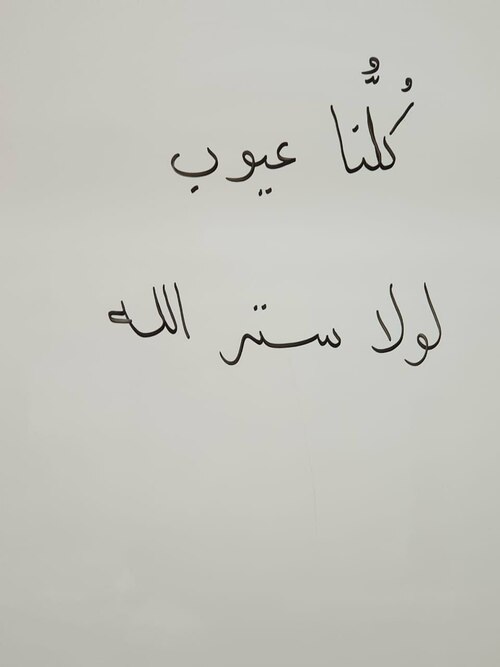 كُلُّنا عيوب
لولا ستر الله